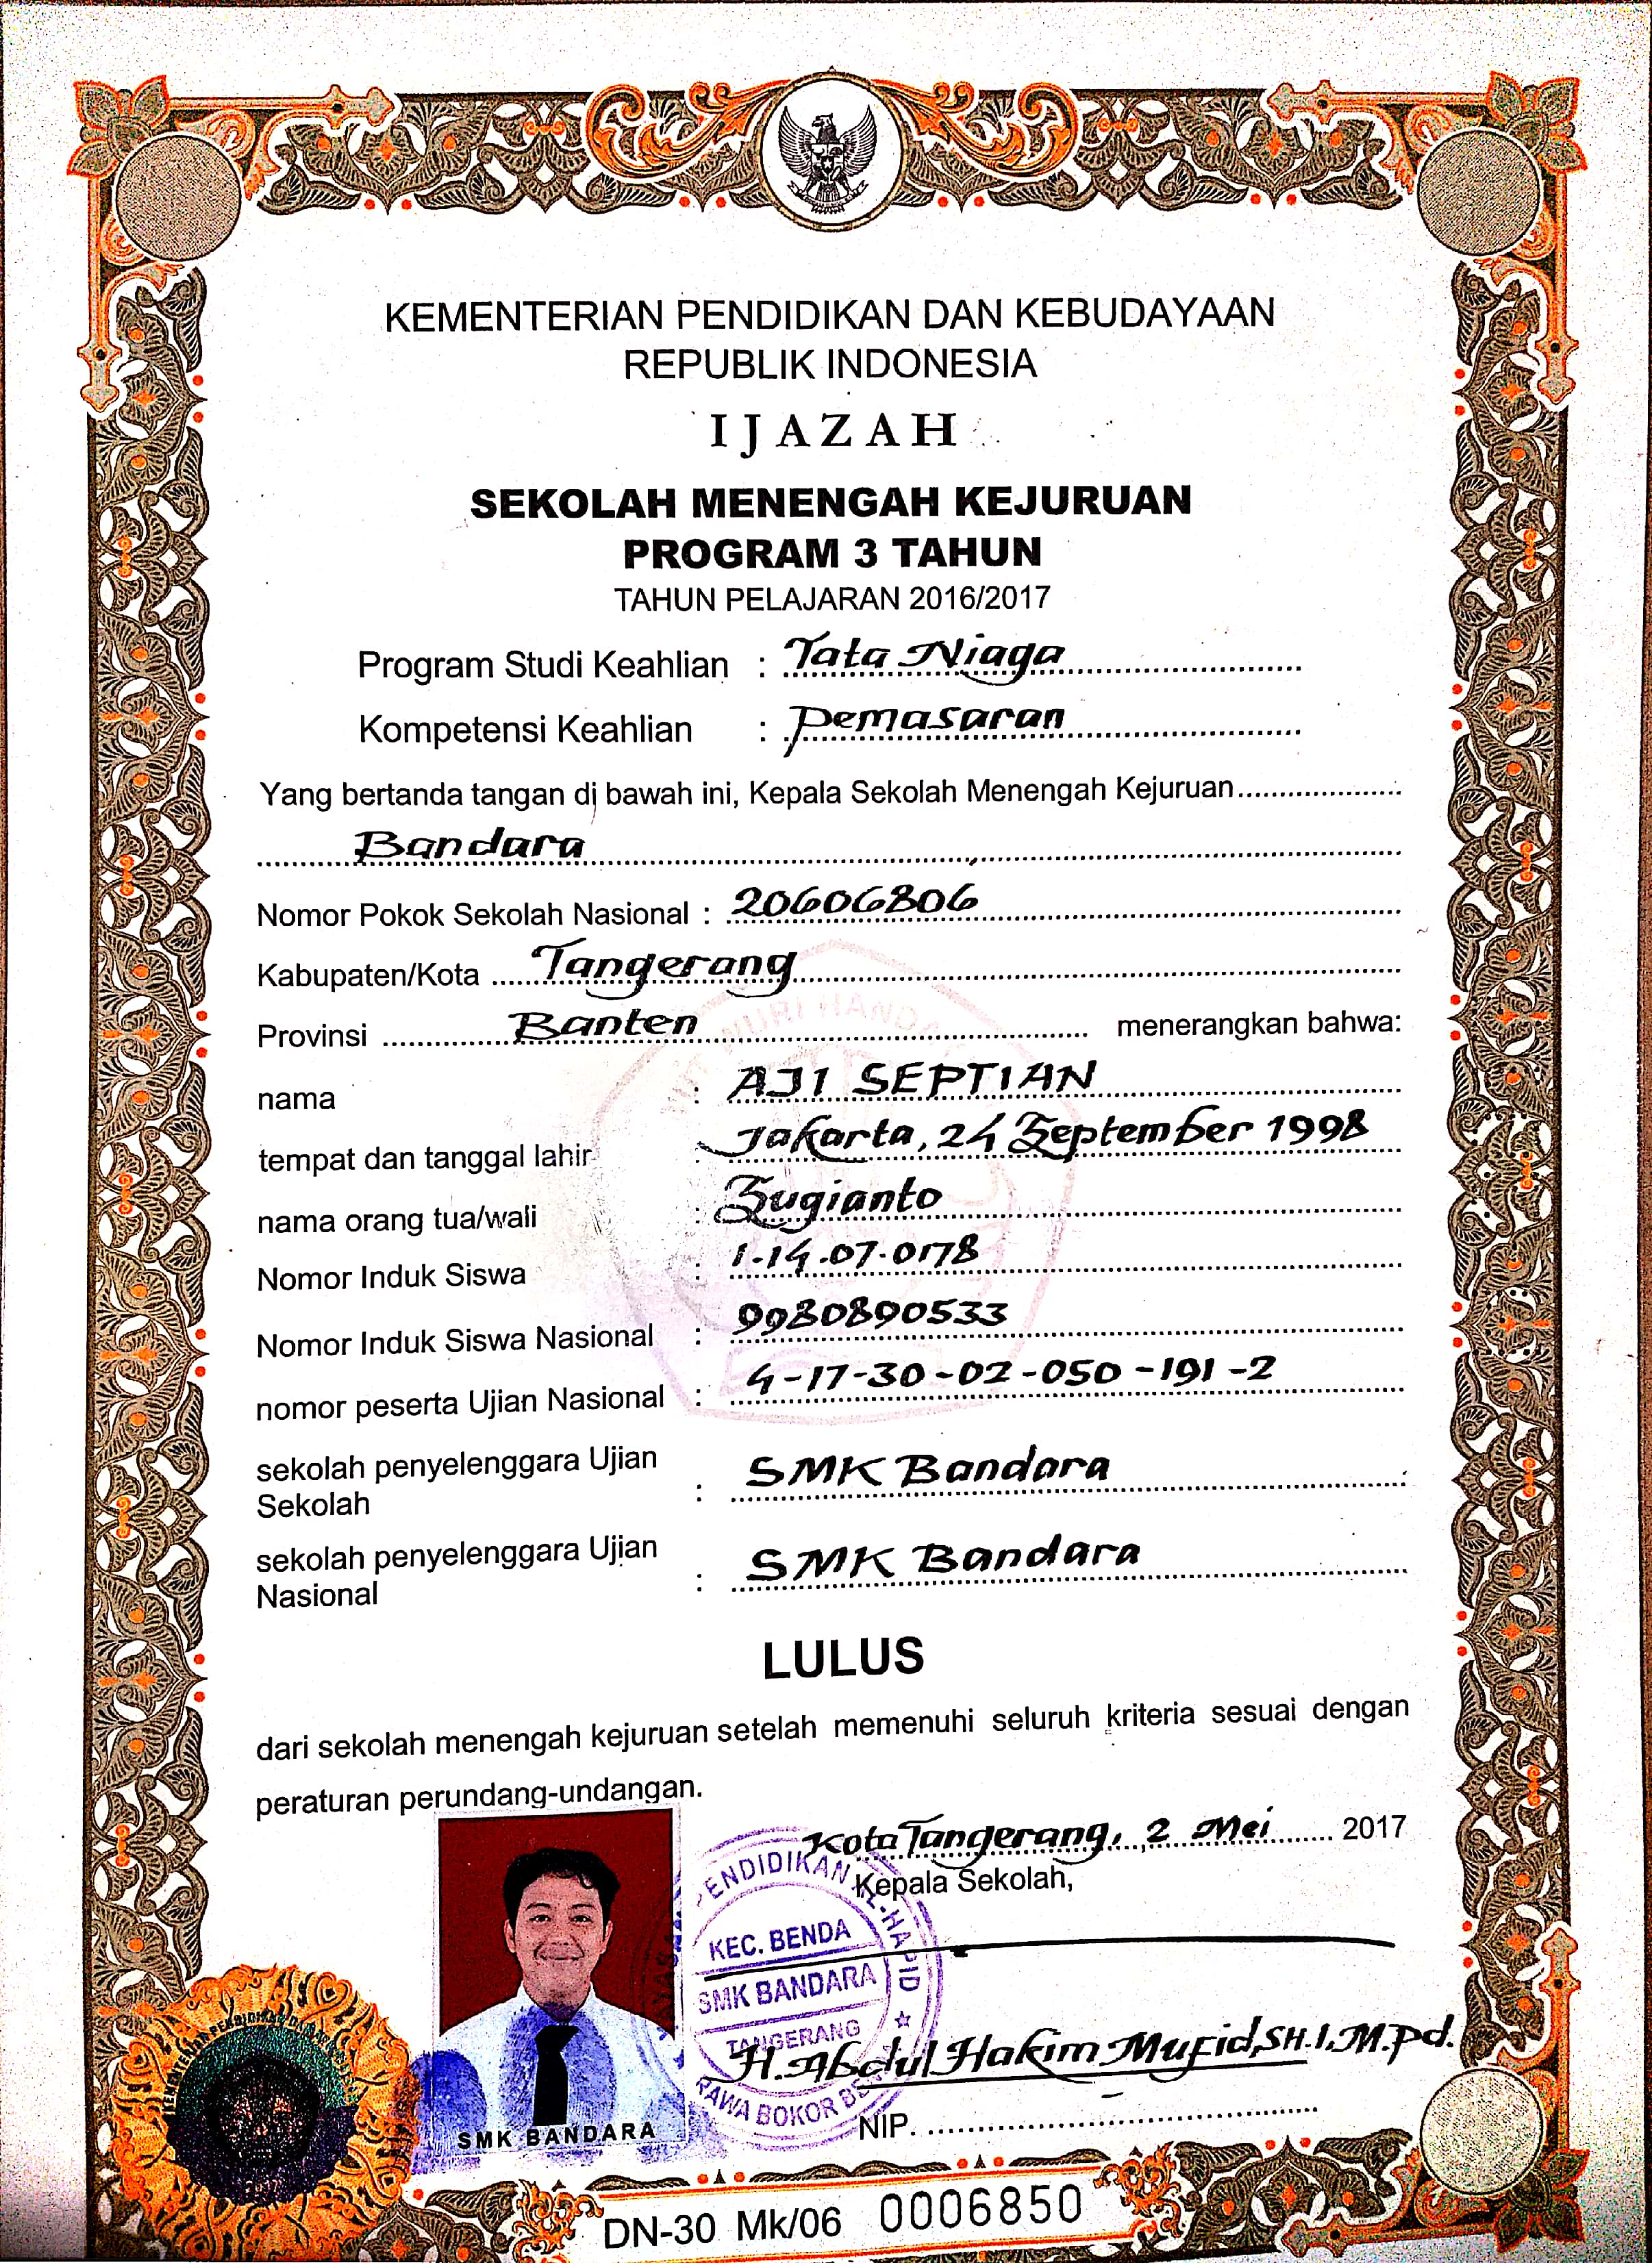 KEMENTERIAN PENDIDIKAN DAN KEBUDAYAAN
REPUBLIK INDONESIA
IJAZAH
SEKOLAH MENENGAH KEJURUAN
PROGRAM 3 TAHUN
TAHUN PELAJARAN 2016/2017
Program Studi Keahlian : Tata Niaga
Kompetensi Keahlian : Pemasaran
Yang bertanda tangan di bawah ini, Kepala Sekolah Menengah Kejuruan
Bandara
Nomor Pokok Sekolah Nasional : 20606806
Kabupaten/Kota Tangerang
Provinsi Banten menerangkan bahwa:
nama : AJI SEPTIAN
tempat dan tanggal lahir : Jakarta, 24 September 1998
nama orang tua/wali : Sugianto
Nomor Induk Siswa : 1-14.07.0178
Nomor Induk Siswa Nasional : 9980890533
nomor peserta Ujian Nasional : 4-17-30-02-050-191-2
sekolah penyelenggara Ujian
Sekolah : SMK Bandara
sekolah penyelenggara Ujian
Nasional : SMK Bandara
LULUS
dari sekolah menengah kejuruan setelah memenuhi seluruh kriteria sesuai dengan
peraturan perundang-undangan.
Kota Tangerang, 2 Mei 2017
Kepala Sekolah,
PENDIDIKAN
KEC. BENDA
SMK BANDARA
TANGERANG
RAWA BOKOR
H. Abdul Hakim Mufid, SH.I, M.Pd.
NIP.
SMK BANDARA
DN-30 Mk/06 0006850